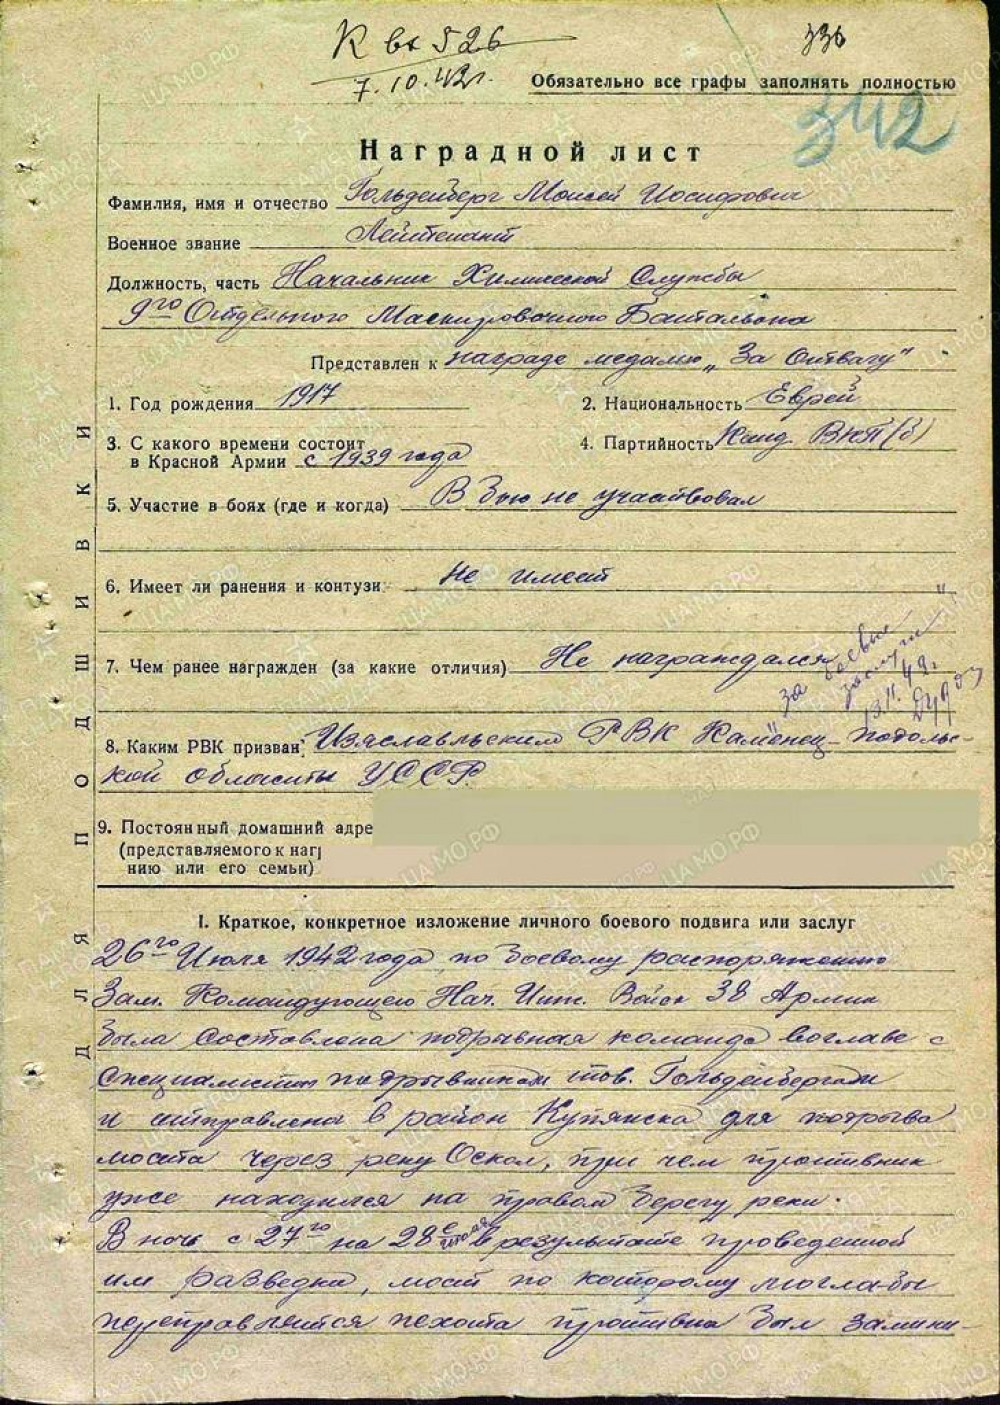 К вх 526
7.10.42г.
336
Обязательно все графы заполнять полностью
342
Наградной лист
Фамилия, имя и отчество Гольденберг Моисей Иосифович
Военное звание Лейтенант
Должность, часть Начальник Химической Службы
9го Отдельного Маскировочного Батальона
Представлен к награде медалью "За Отвагу"
1. Год рождения 1917
2. Национальность Еврей
3. С какого времени состоит
в Красной Армии с 1939 года
4. Партийность Канд. ВКП(б)
5. Участие в боях (где и когда) В бою не участвовал
6. Имеет ли ранения и контузи Не имеет
7. Чем ранее награжден (за какие отличия) Не награждался
за боевые
заслуги"
8. Каким РВК призван Изяславльским РВК Каменец-Подольс-
кой области УССР
9. Постоянный домашний адре
(представляемого к наг
нию или его семьи)
ДЛЯ ПОДШИВКИ
I. Краткое, конкретное изложение личного боевого подвига или заслуг
26го Июля 1942 года по боевому распоряжению
Зам. Командующего Нач. Инж. Войск 38 Армии
была составлена подрывная команда воглаве с
специалистом подрывником тов. Гольденбергом
и отправлена в район Купянска для подрыва
моста через реку Оскол, при чем противник
уже находился на правом берегу реки.
В ночь с 27го на 28е в результате проведенной
им разведки, мост по которому могла-бы
переправиться пехота противни был замини-